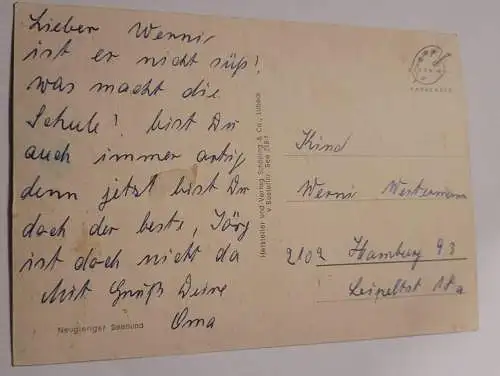 Lieber Werni,
ist er nicht süß!
was macht die
Schule! bist Du
auch immer artig
denn jetzt bist Du
doch der beste, Jörg
ist doch nicht da
Mit Gruß Deine
Oma
Neugieriger Seehund
Hersteller und Verlag Schöning & Co., Lübeck
Kind
Werni Westermann
2102 Hamburg 93